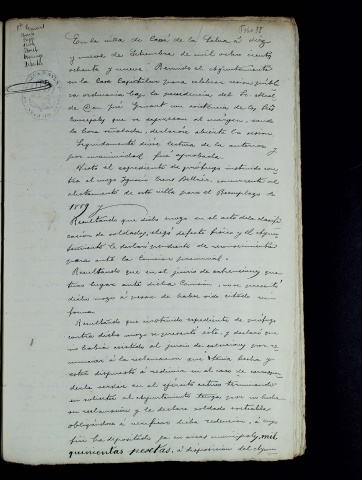 En la villa de Cassá de la Selva á diez
y nueve de Setiembre de mil ocho cientos
ochenta y nueve. Reunido el Ayuntamiento
en la Casa Capitular para celebrar sesion públi-
ca ordinaria bajo la presidencia del Sr. Alcal
de Dn. José con asistencia de los Sres
Concejales que se expresan al márgen, siendo
la hora señalada, declaróse abierta la sesion.
Seguidamente dióse lectura de la anterior y
por unanimidad fué aprobada.
Visto el espediente de prófugo instruido con
tra el mozo Ignacio concurrente al
alistamiento de esta villa para el Reemplazo de
1889 y
Resultando que dicho mozo en el acto de la clasifi
cacion de soldados, alegó defecto físico y el Ayun
tamiento le declaró pendiente de reconocimiento
para ante la Comision provincial.
Resultando que en el juicio de exenciones que
tuvo lugar ante dicha Comision, no se presentó
dicho mozo á pesar de haber sido citado en
forma.
Resultando que instruido espediente de prófugo
contra dicho mozo se presentó éste, y declaró que
no habia asistido al juicio de exenciones por re
nunciar á la reclamacion que tenia hecha y
estar dispuesto á redimirse en el caso de
derle servir en el ejército activo terminando
en solicitar al Ayuntamiento tenga por no hecha
su reclamacion y le declare soldado sorteable
obligándose á verificar dicha redencion, á cuyo
fin ha depositado ya en arcas municipales, mil
quinientas pesetas, á disposicion del Ayun